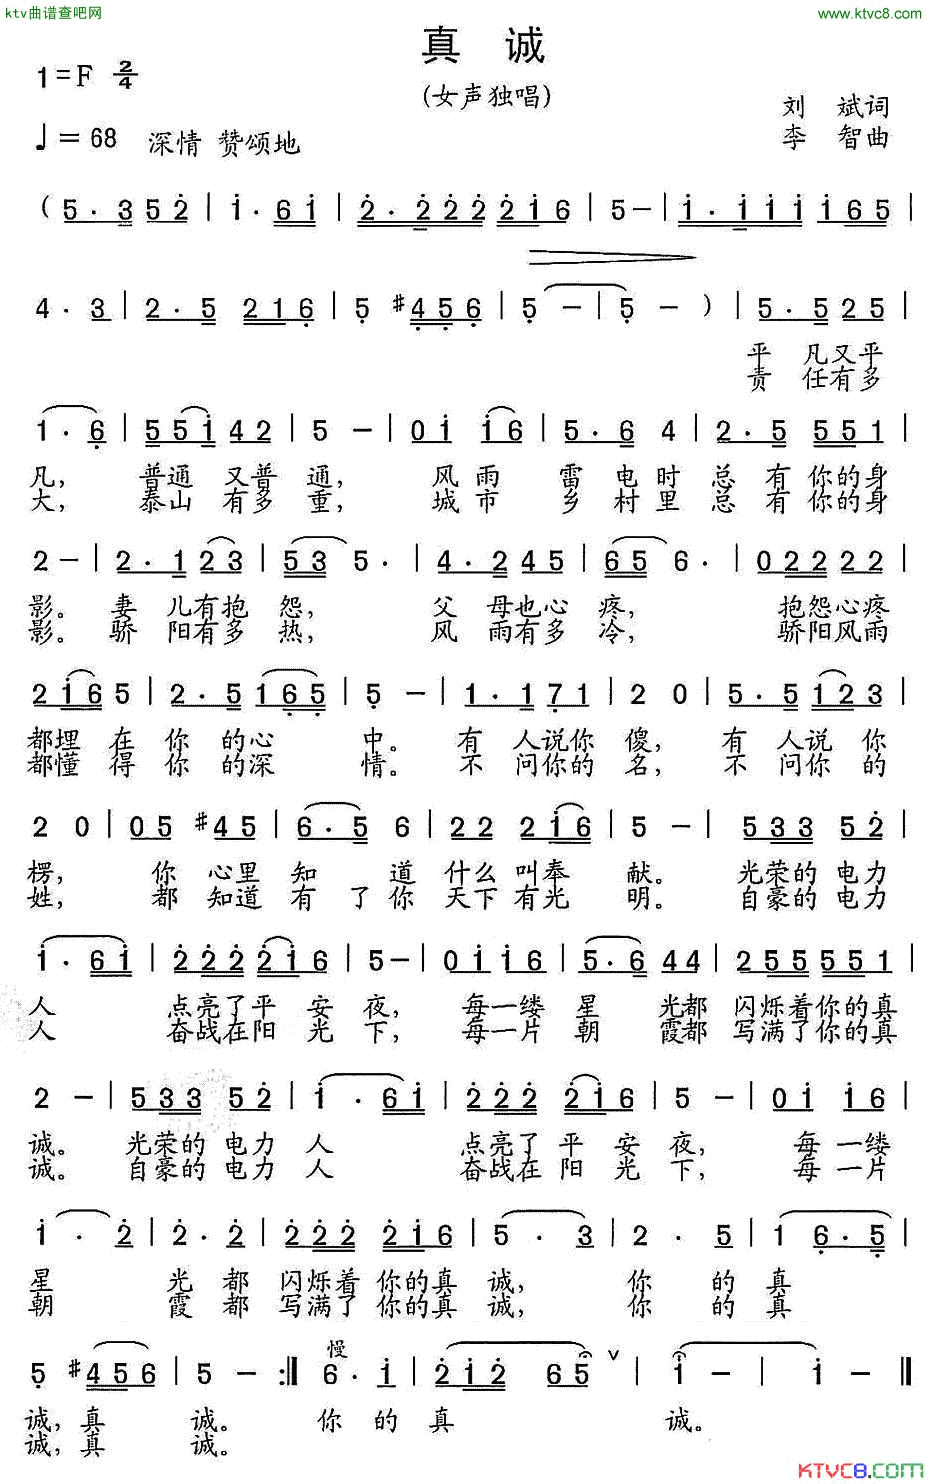 ktv曲谱查吧网
www.ktvc8.com
真 诚
1=F 2/4
(女声独唱)
刘 斌词
♩=68 深情 赞颂地
李 智曲
( 5·3 5 2 | 1·6 1 | 2·2 2 2 2 1 6 | 5 - | 1·1 1 1 1 6 5 |
4·3 | 2·5 2 1 6 | 5 #4 5 6 | 5 - | 5 - ) | 5·5 2 5 |
平 凡又平
责 任有多
1·6 | 5 5 1 4 2 | 5 - | 0 1 1 6 | 5·6 4 | 2·5 5 5 1 |
凡, 普通 又普 通, 风雨 雷 电时 总 有你的身
大, 泰山 有多 重, 城市 乡 村里 总 有你的身
2 - | 2·1 2 3 | 5 3 5· | 4·2 4 5 | 6 5 6· | 0 2 2 2 2 |
影。 妻 儿有抱 怨, 父 母也心 疼, 抱怨心疼
影。 骄 阳有多 热, 风 雨有多 冷, 骄阳风雨
2 1 6 5 | 2·5 1 6 5 | 5 - | 1·1 7 1 | 2 0 | 5·5 1 2 3 |
都埋 在 你 的心 中。 有 人说你 傻, 有 人说 你
都懂 得 你 的深 情。 不 问你的 名, 不 问你 的
2 0 | 0 5 #4 5 | 6·5 6 | 2 2 2 1 6 | 5 - | 5 3 3 5 2 |
楞, 你 心里 知 道 什么 叫奉 献。 光荣的 电力
姓, 都 知道 有 了 你 天下 有光 明。 自豪的 电力
1·6 1 | 2 2 2 2 1 6 | 5 - | 0 1 1 1 | 5·6 4 4 | 2 5 5 5 5 5 1 |
人 点亮了平 安夜, 每一缕 星 光都 闪烁着你的真
人 奋战在阳 光下, 每一片 朝 霞都 写满了你的真
2 - | 5 3 3 5 2 | 1·6 1 | 2 2 2 2 1 6 | 5 - | 0 1 1 6 |
诚。 光荣的 电力 人 点亮了 平 安夜, 每 一缕
诚。 自豪的 电力 人 奋战在 阳 光下, 每 一片
1·2 | 2·2 | 2 2 2 2 1 6 | 5·3 | 2·5 | 1 6·5 |
星 光 都 闪烁着 你的真 诚, 你 的 真
朝 霞 都 写满了 你的真 诚, 你 的 真
慢
5 #4 5 6 | 5 - :‖ 6·1 | 2 1 2 6 5 ∨ | 1 - | 1 - ‖
诚,真 诚。 你 的 真 诚。
诚,真 诚。
KTVC8.COM